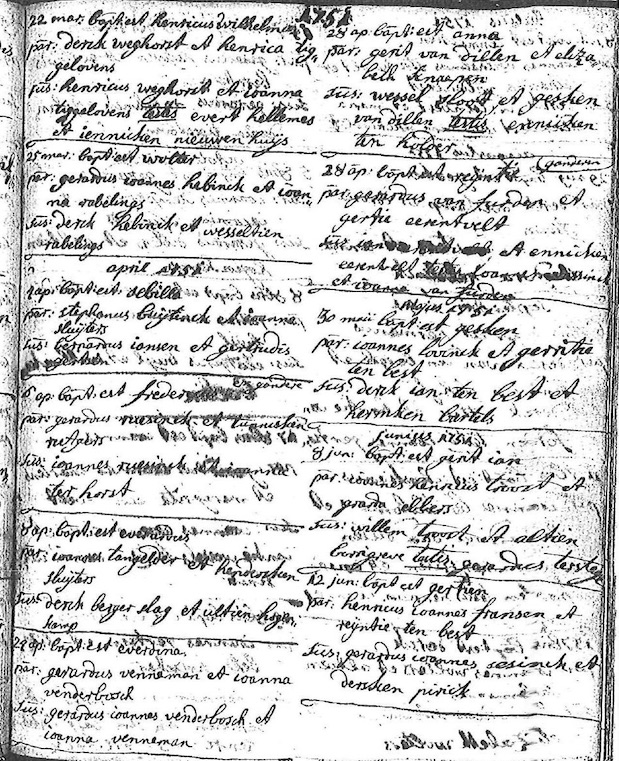 1751
22 mar: bapt: est henricus wilhelmus
par: derck weghorst et henrica lig
gelovens
sus: henricus weghorst et ioanna
liggelovens testes evert hellemes
et iennicken nieuwenhuijs
25 mar: bapt: est wolter
par: gerardus ioannes hebinck et ioan
na rabelings
sus: derck hebinck et wesseltien
rabelings
april 1751
4 ap: bapt: est sibilla
par: stephanus buijtinck et ioanna
sluijters
sus: bernardus iansen et gertrudis
6 ap: bapt: est
par: gerardus ruesinck et
rutgers
sus: ioannes ruesinck et ioanna
ter horst
8 ap: bapt: est everardus
par: ioannes tangelder et hendersken
sluijters
sus: derck berger slag et altien hagen
kamp
22 ap: bapt: est everdina
par: gerardus venneman et ioanna
venderbosch
sus: gerardus ioannes venderbosch et
ioanna venneman
28 ap: bapt: est anna
par: gerit van dillen et eliza
beth knaepen
sus: wessel sloot et gesken
van dillen testes ennicken
ten holder
ganderen
28 ap: bapt: est reijntie
par: gerardus van furden et
gertie eerentvelt
et ennicken
eerentvelt testes ioannes
et ioanna van furden
majus 1751
30 maii bapt: est gesken
par: ioannes lovinck et gerritie
ten best
sus: derck ian ten best et
hermken bartels
junius 1751
8 jun: bapt: est gerit ian
par: ioannes henricus troost et
grada ebbers
sus: willem troost et altien
testes gerardus
12 jun: bapt: est gertien
par: henricus ioannes fransen et
reijntie ten best
sus: gerardus ioannes sesinck et
dersken pirick